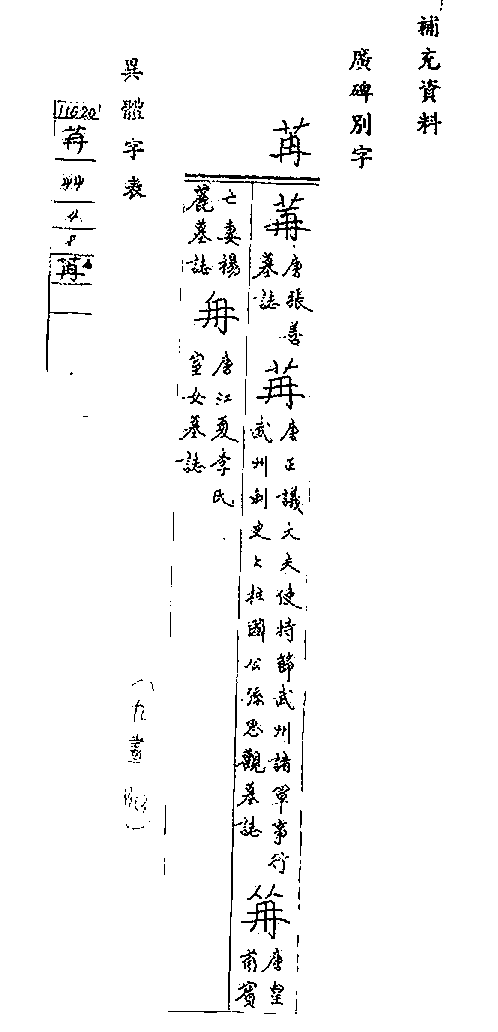 補充資料
廣碑別字
苒
苒 唐張善
墓誌
苒 唐正議大夫使持節武州諸軍事行
武州刺史上柱國公孫思觀墓誌
苒 唐皇
甫賓
亡妻楊
麗墓誌
冉 唐江夏李氏
室女墓誌
異體字表
11620
苒
44
4
8
苒
(九畫